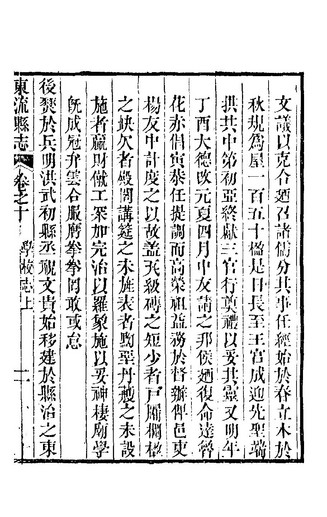 文議以克合廼召諸儒分其事任經始於春立木於
秋規為屋一百五十楹是日長至王宮成廼先聖端
拱其中第初亞終獻三官行奠禮以妥其靈又明年
丁酉大德改元夏四月中友請之那侯廼復命達魯
花赤倡寅恭任提調而高榮祖益務於督辦俾邑吏
楊友中計度之以故蓋瓦級磚之短少者戶牖欄楹
之缺欠者殿閣講筵之未旌表者黝堊丹雘之未設
施者羸財僦工眾加完治以羅象施以妥神棲廟學
旣成冠弁雲合服膺拳拳罔敢或怠
後燹於兵明洪武初縣丞祝文貴始移建於縣治之東
東流縣志 卷之十 學校志上